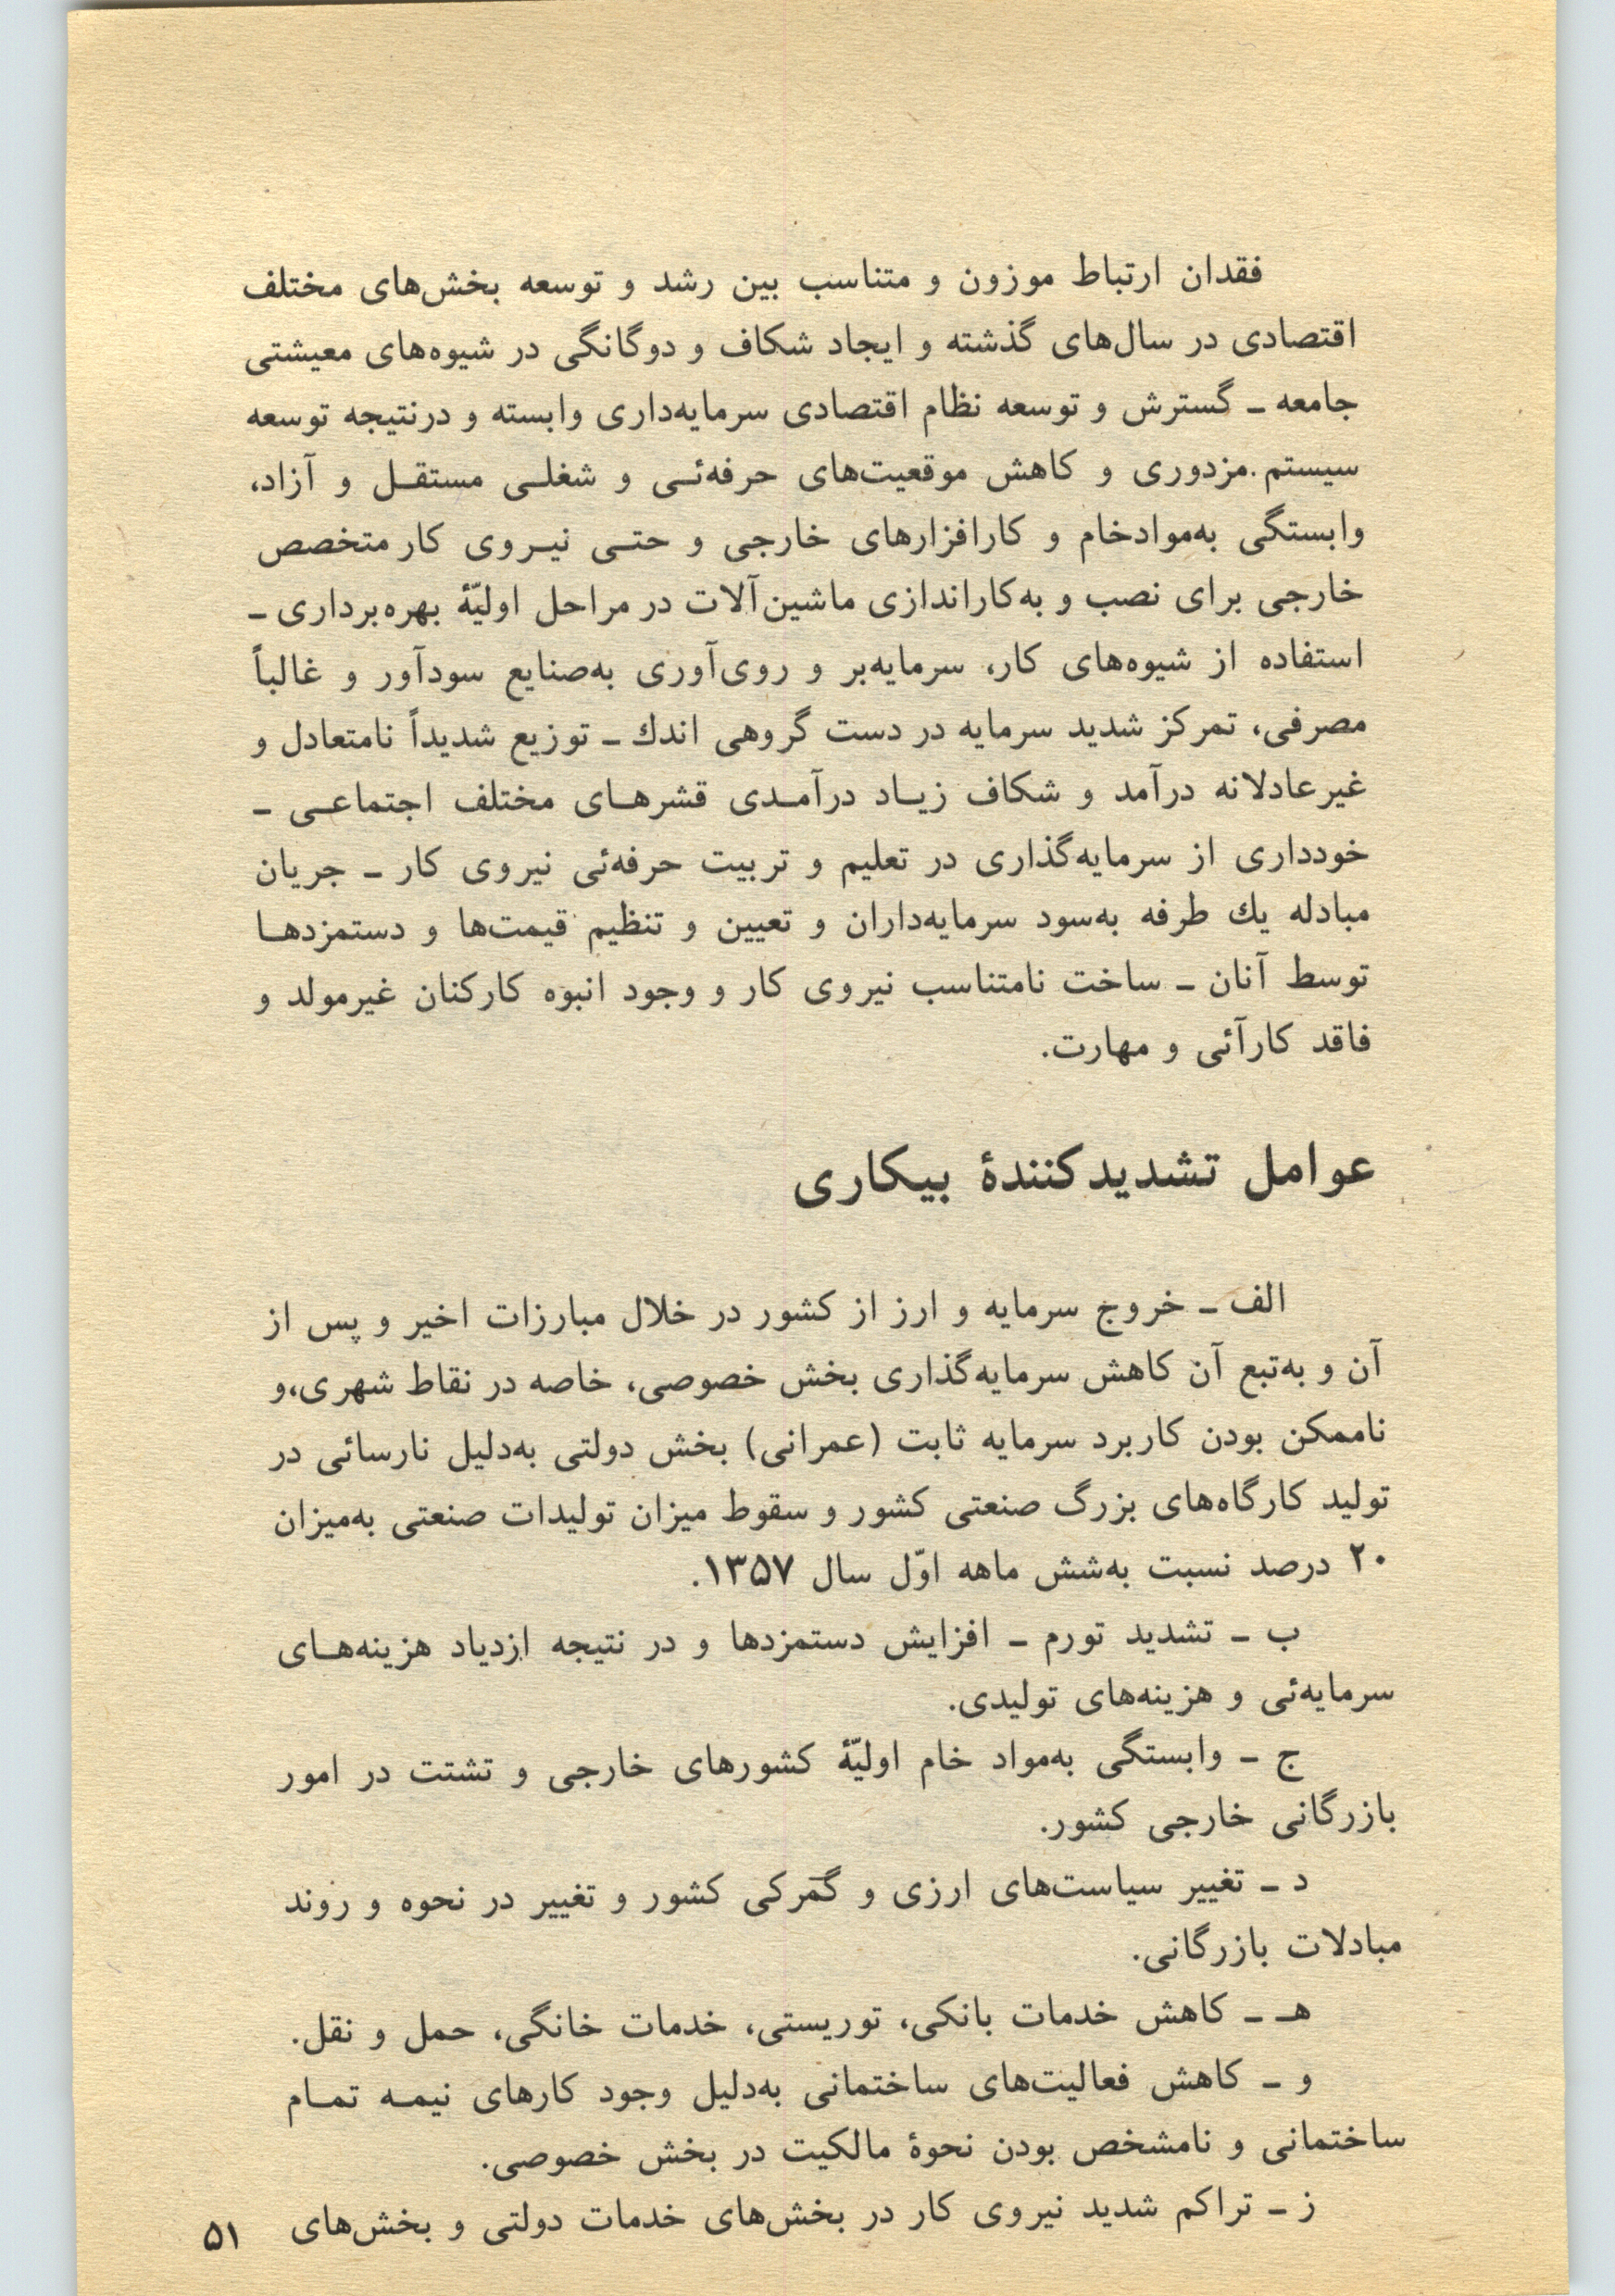 فقدان ارتباط موزون و متناسب بین رشد و توسعه بخش‌های مختلف
اقتصادی در سال‌های گذشته و ایجاد شکاف و دوگانگی در شیوه‌های معیشتی
جامعه ـ گسترش و توسعه نظام اقتصادی سرمایه‌داری وابسته و درنتیجه توسعه
سیستم مزدوری و کاهش موقعیت‌های حرفه‌ئـی و شغلـی مستقـل و آزاد،
وابستگی به‌موادخام و کارافزارهای خارجی و حتـی نیـروی کار متخصص
خارجی برای نصب و به‌کاراندازی ماشین‌آلات در مراحل اولیّهٔ بهره‌برداری ـ
استفاده از شیوه‌های کار، سرمایه‌بر و روی‌آوری به‌صنایع سودآور و غالباً
مصرفی، تمرکز شدید سرمایه در دست گروهی اندك ـ توزیع شدیداً نامتعادل و
غیرعادلانه درآمد و شکاف زیـاد درآمـدی قشرهـای مختلف اجتماعـی ـ
خودداری از سرمایه‌گذاری در تعلیم و تربیت حرفه‌ئی نیروی کار ـ جریان
مبادله یك طرفه به‌سود سرمایه‌داران و تعیین و تنظیم قیمت‌ها و دستمزدهـا
توسط آنان ـ ساخت نامتناسب نیروی کار و وجود انبوه کارکنان غیرمولد و
فاقد کارآئی و مهارت.
عوامل تشدیدکنندهٔ بیکاری
الف ـ خروج سرمایه و ارز از کشور در خلال مبارزات اخیر و پس از
آن و به‌تبع آن کاهش سرمایه‌گذاری بخش خصوصی، خاصه در نقاط شهری،و
ناممکن بودن کاربرد سرمایه ثابت (عمرانی) بخش دولتی به‌دلیل نارسائی در
تولید کارگاه‌های بزرگ صنعتی کشور و سقوط میزان تولیدات صنعتی به‌میزان
۲۰ درصد نسبت به‌شش ماهه اوّل سال ۱۳۵۷.
ب ـ تشدید تورم ـ افزایش دستمزدها و در نتیجه ازدیاد هزینه‌هـای
سرمایه‌ئی و هزینه‌های تولیدی.
ج ـ وابستگی به‌مواد خام اولیّهٔ کشورهای خارجی و تشتت در امور
بازرگانی خارجی کشور.
د ـ تغییر سیاست‌های ارزی و گمرکی کشور و تغییر در نحوه و روند
مبادلات بازرگانی.
هـ ـ کاهش خدمات بانکی، توریستی، خدمات خانگی، حمل و نقل.
و ـ کاهش فعالیت‌های ساختمانی به‌دلیل وجود کارهای نیمـه تمـام
ساختمانی و نامشخص بودن نحوهٔ مالکیت در بخش خصوصی.
ز ـ تراکم شدید نیروی کار در بخش‌های خدمات دولتی و بخش‌های
۵۱